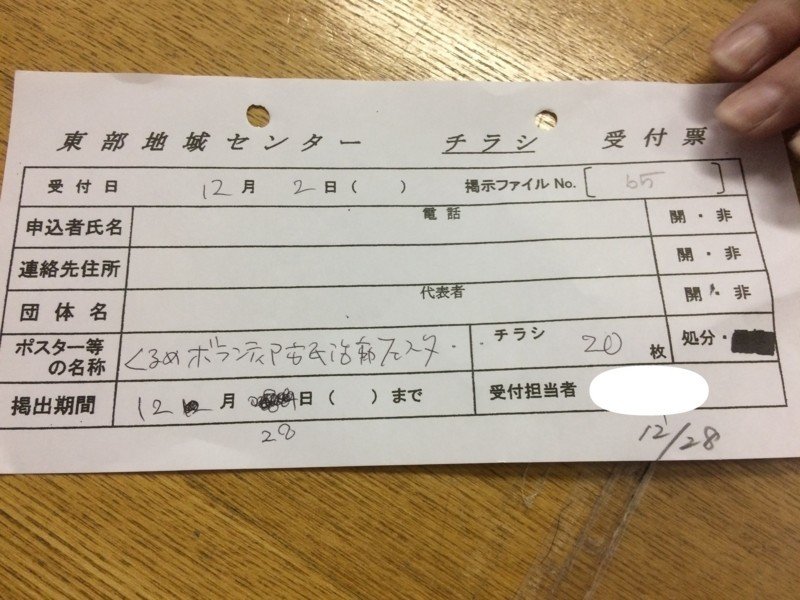 東部地域センター チラシ 受付票
受付日 12月 2日( ) 掲示ファイルNo. [ 65 ]
申込者氏名 電話 開・非
連絡先住所 開・非
団体名 代表者 開・非
ポスター等の名称 くるめボランティア市民活動フェスタ チラシ 20枚 処分・
掲出期間 12月 日( )まで 受付担当者
28 12/28